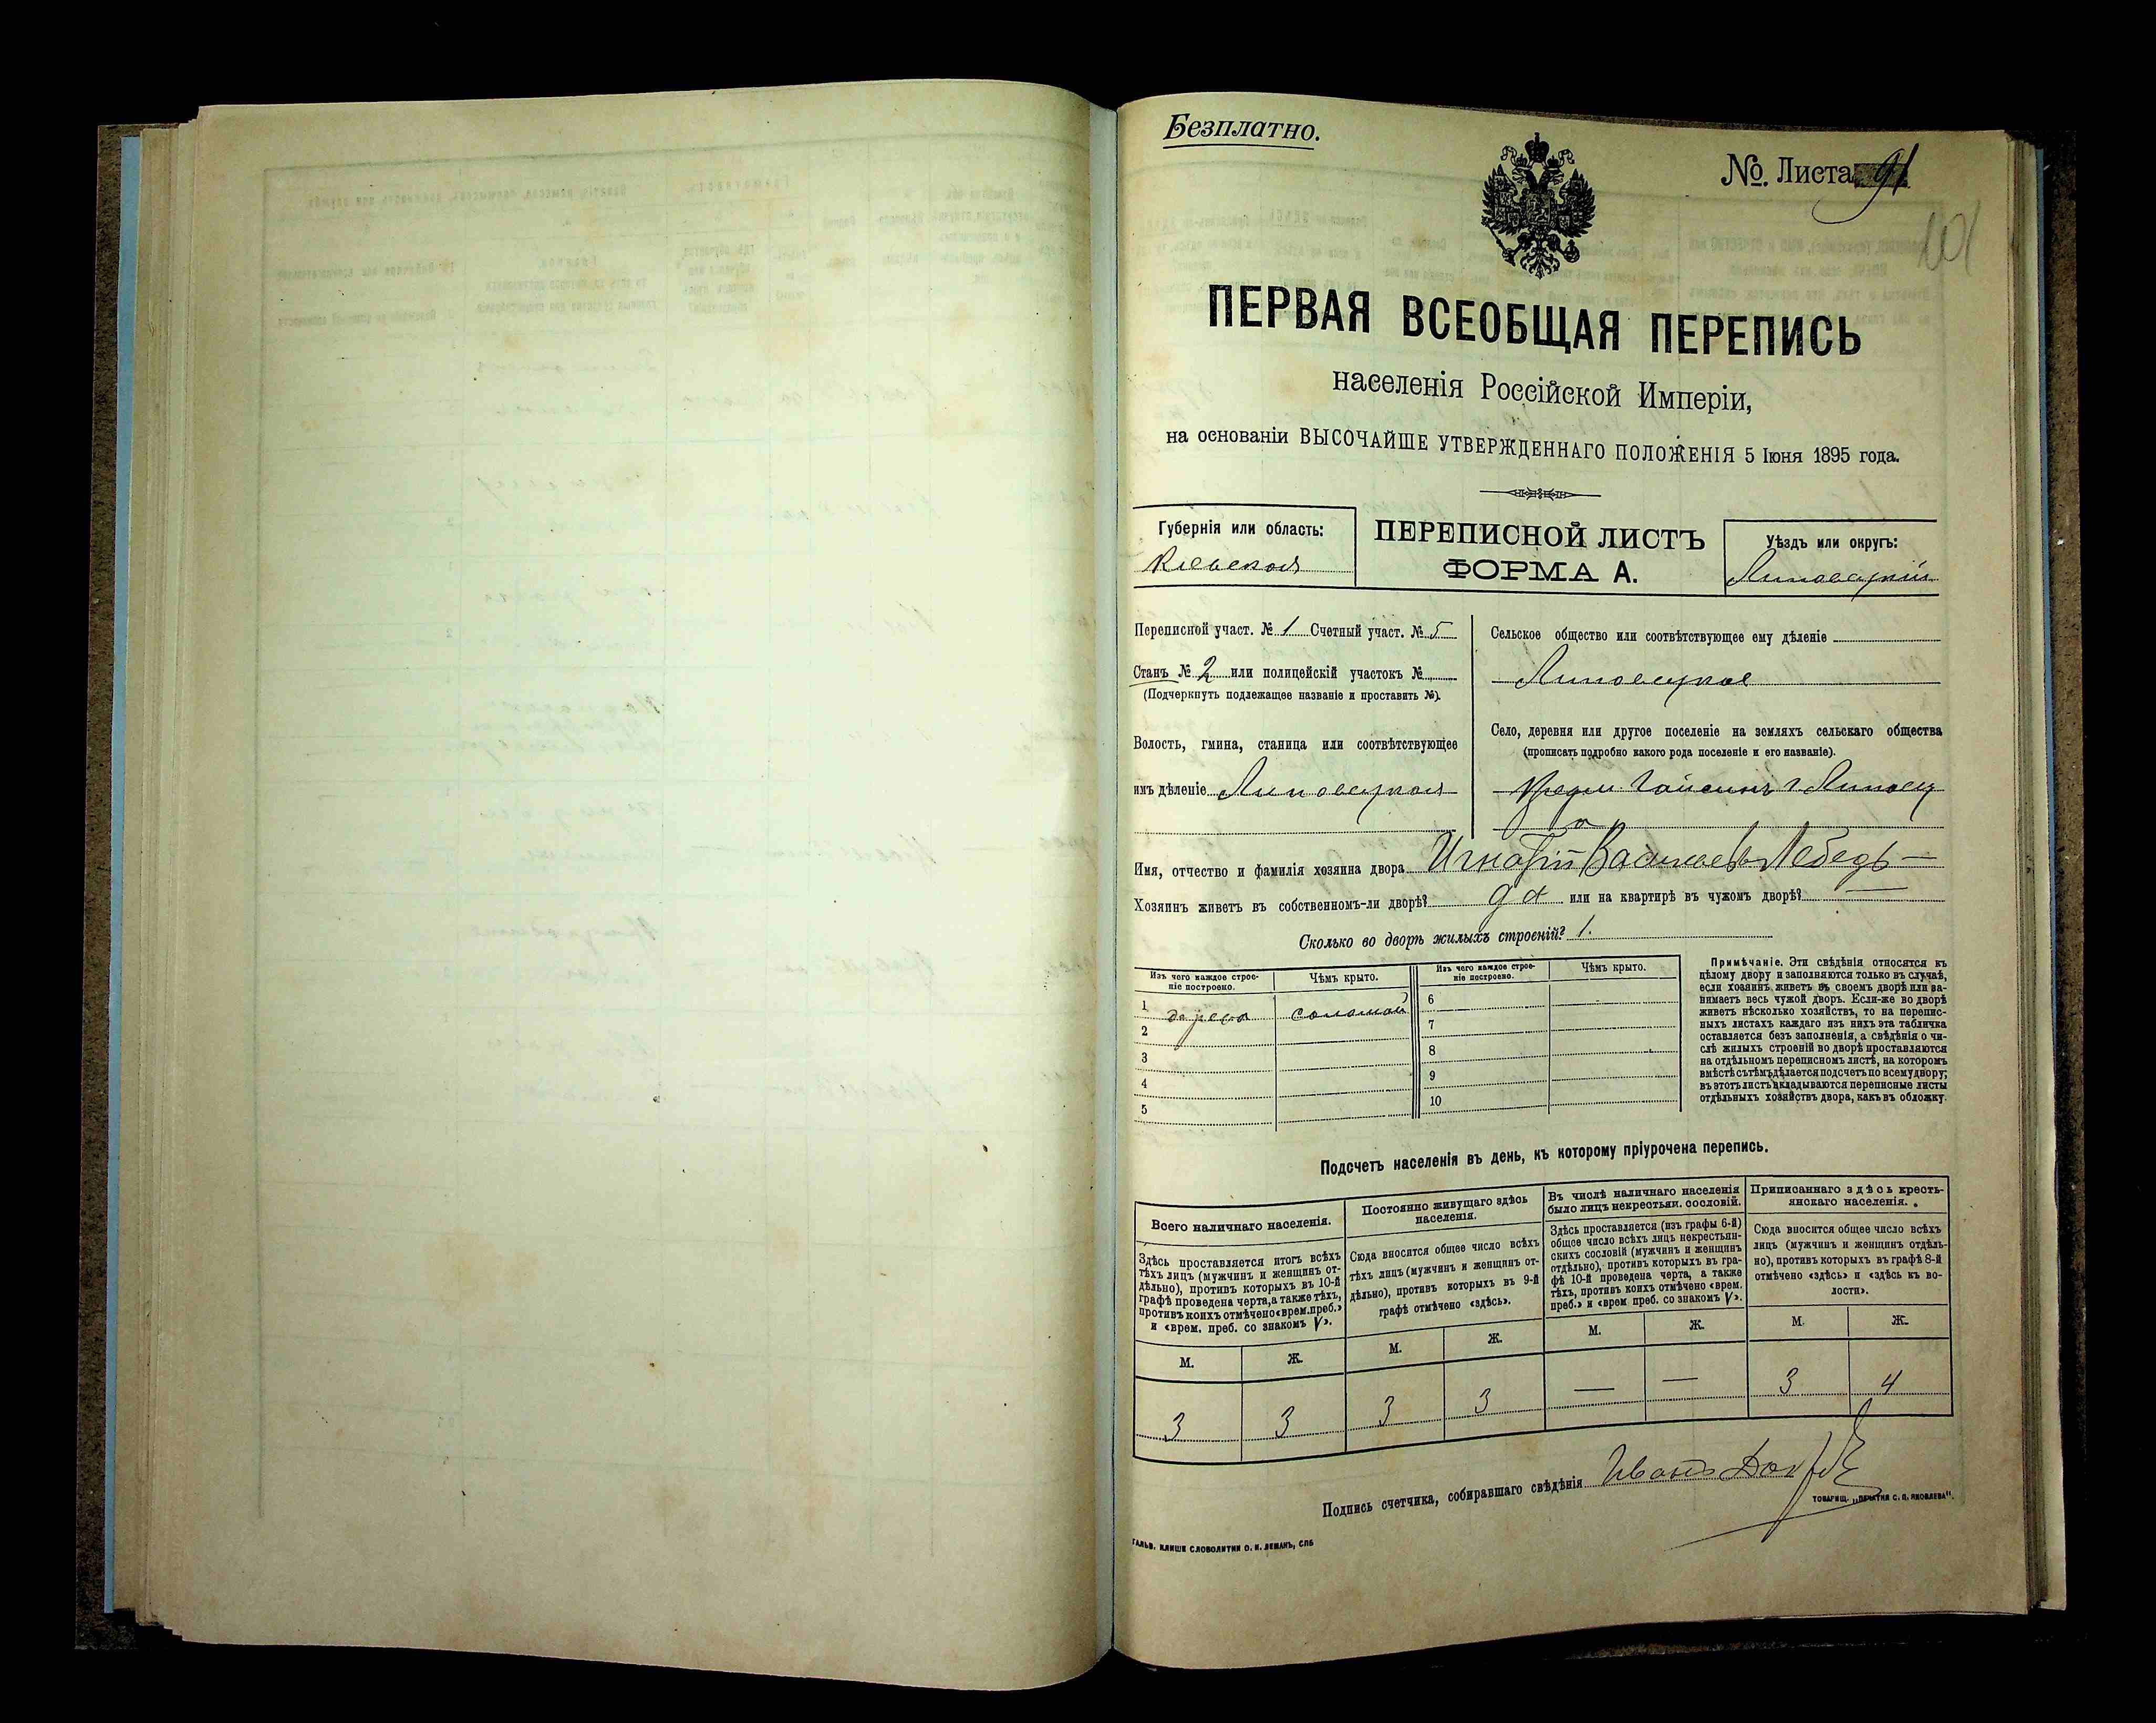 Безплатно.
№. Листа 91
101
ПЕРВАЯ ВСЕОБЩАЯ ПЕРЕПИСЬ
населенія Россійской Имперіи,
на основаніи ВЫСОЧАЙШЕ УТВЕРЖДЕННАГО ПОЛОЖЕНІЯ 5 Іюня 1895 года.
Губернія или область:
Кіевская
ПЕРЕПИСНОЙ ЛИСТЪ
ФОРМА А.
Уѣздъ или округъ:
Липовецкій
Переписной участ. № 1 Счетный участ. № 5
Станъ № 2 или полицейскій участокъ №
(Подчеркнуть подлежащее названіе и проставить №).
Волость, гмина, станица или соотвѣтствующее
имъ дѣленіе Липовецкая
Сельское общество или соотвѣтствующее ему дѣленіе
Липовецкое
Село, деревня или другое поселеніе на земляхъ сельскаго общества
(прописать подробно какого рода поселеніе и его названіе).
Предм. Гайсинъ г. Липовц
а
Имя, отчество и фамилія хозяина двора Игнатій Васильев Лебедь
Хозяинъ живетъ въ собственномъ-ли дворѣ? да или на квартирѣ въ чужомъ дворѣ? —
Сколько во дворѣ жилыхъ строеній? 1.
Изъ чего каждое строе-
ніе построено.
Чѣмъ крыто.
Изъ чего каждое строе-
ніе построено.
Чѣмъ крыто.
1 дерева соломой
2
3
4
5
6
7
8
9
10
Примѣчаніе. Эти свѣдѣнія относятся къ
цѣлому двору и заполняются только въ случаѣ,
если хозяинъ живетъ въ своемъ дворѣ или за-
нимаетъ весь чужой дворъ. Если-же во дворѣ
живетъ нѣсколько хозяйствъ, то на перепис-
ныхъ листахъ каждаго изъ нихъ эта табличка
оставляется безъ заполненія, а свѣдѣнія о чи-
слѣ жилыхъ строеній во дворѣ проставляются
на отдѣльномъ переписномъ листѣ, на которомъ
вмѣстѣ съ тѣмъ дѣлается подсчетъ по всему двору;
въ этотъ листъ вкладываются переписные листы
отдѣльныхъ хозяйствъ двора, какъ въ обложку.
Подсчетъ населенія въ день, къ которому пріурочена перепись.
Всего наличнаго населенія.
Здѣсь проставляется итогъ всѣхъ
тѣхъ лицъ (мужчинъ и женщинъ от-
дѣльно), противъ которыхъ въ 10-й
графѣ проведена черта, а также тѣхъ,
противъ коихъ отмѣчено «врем. преб.»
и «врем. преб. со знакомъ V».
Постоянно живущаго здѣсь
населенія.
Сюда вносится общее число всѣхъ
тѣхъ лицъ (мужчинъ и женщинъ от-
дѣльно), противъ которыхъ въ 9-й
графѣ отмѣчено «здѣсь».
Въ числѣ наличнаго населенія
было лицъ некрестьян. сословій.
Здѣсь проставляется (изъ графы 6-й)
общее число всѣхъ лицъ некрестьян-
скихъ сословій (мужчинъ и женщинъ
отдѣльно), противъ которыхъ въ гра-
фѣ 10-й проведена черта, а также
тѣхъ, противъ коихъ отмѣчено «врем.
преб.» и «врем преб. со знакомъ V».
Приписаннаго здѣсь кресть-
янскаго населенія.
Сюда вносится общее число всѣхъ
лицъ (мужчинъ и женщинъ отдѣль-
но), противъ которыхъ въ графѣ 8-й
отмѣчено «здѣсь» и «здѣсь къ во-
лости».
М. Ж. М. Ж. М. Ж. М. Ж.
3 3 3 3 — — 3 4
Подпись счетчика, собиравшаго свѣдѣнія Иванъ
ТОВАРИЩ. „ПЕЧАТНЯ С. П. ЯКОВЛЕВА".
ГАЛЬВ. КЛИШЕ СЛОВОЛИТНИ О. И. ЛЕМАНЪ, СПБ